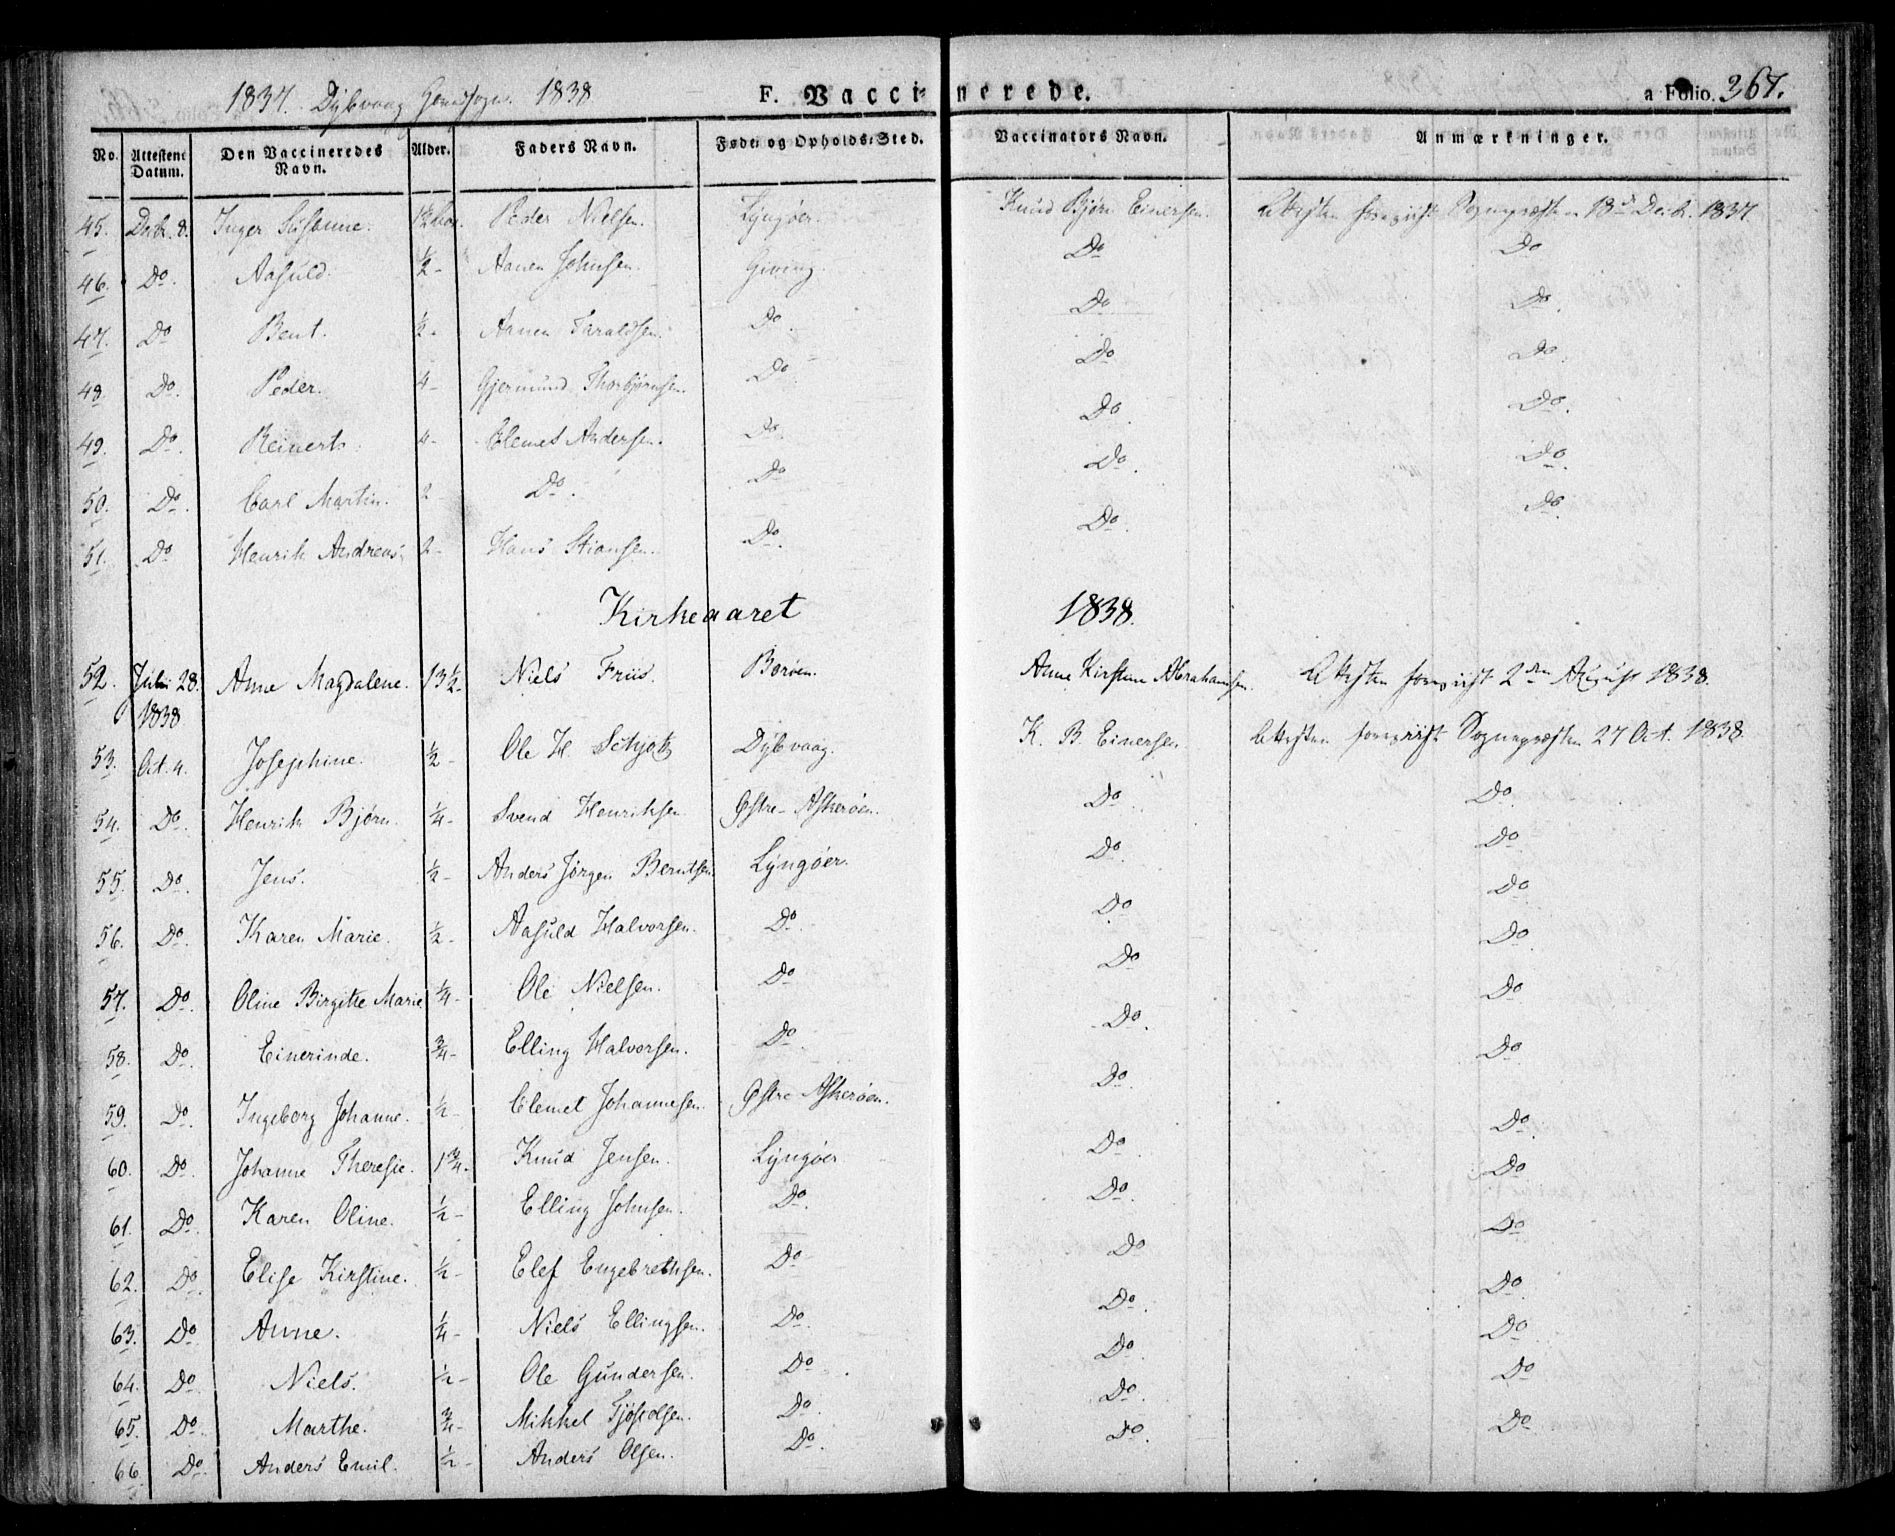 1837. Dybvaag Hovedsogn. 1838 F. Vaccinerede. a Folio. 367.
No. Attestens Datum. Den Vaccineredes Navn. Alder. Faders Navn. Føde- og Opholds-Sted. Vaccinators Navn. Anmærkninger.
45. Decbr. 8. Inger Susanne. Peder Nielsen. Lyngøer. Knud Bjørn Einersen. Attesten foreviist Sognepræsten 18de Decbr. 1837.
46. Do. Aasuld. ½ - Aanen Johnsen. Giving. Do Do
47. Do Bent. ½ - Aanen Taraldsen. Do. Do Do.
48. Do. Peder. 4 - Gjermund Thorbjørnsen. Do Do Do.
49. Do. Reinert. 4 - Clemet Andersen. Do. Do. Do.
50. Do. Carl Martin. 2 - Do. Do Do. Do.
51. Do Henrik Andreas. 2 - Hans Stiansen. Do. Do. Do.
Kirkeaaret 1838.
52. Juli 28. 1838 Anne Magdalene. 13½ - Niels Friis. Borøen. Anne Kirstine Abrahamsen. Attesten foreviist 2den August 1838.
53. Oct. 4. Josephine. ½ - Ole H. Schjøtz Dybvaag. K. B. Einersen Attesten foreviist Sognepræsten 27 Oct. 1838.
54. Do. Henrik Bjørn. ¼ - Svend Henriksen Østre-Askerøen. Do. Do.
55. Do. Jens. ½ - Anders Jørgen Berntsen Lyngøer. Do. Do
56. Do. Karen Marie. ½ - Aasuld Halvorsen. Do. Do Do
57. Do. Oline Birgitte Marie ¼ - Ole Nielsen. Do Do Do
58. Do. Einerinde. ¾ - Elling Halvorsen. Do. Do. Do
59. Do. Ingeborg Johanne. ½ - Clemet Johannesen. Østre Askerøen. Do. Do
60. Do. Johanne Theresie. 1¾ - Knud Jensen. Lyngøer Do. Do.
61. Do. Karen Oline. ½ - Elling Johnsen. Do. Do. Do
62. Do. Elise Kirstine. ½ - Elef Engebrethsen. Do Do Do
63. Do Anne. ¼ - Niels Ellingsen. Do. Do. Do.
64. Do Niels. ½ - Ole Gundersen. Do. Do. Do
65. Do. Marthe. ¾ - Mikkel Tjøstolsen. Do. Do. Do
66. Do. Anders Emil. ½ - Anders Olsen. Do. Do. Do